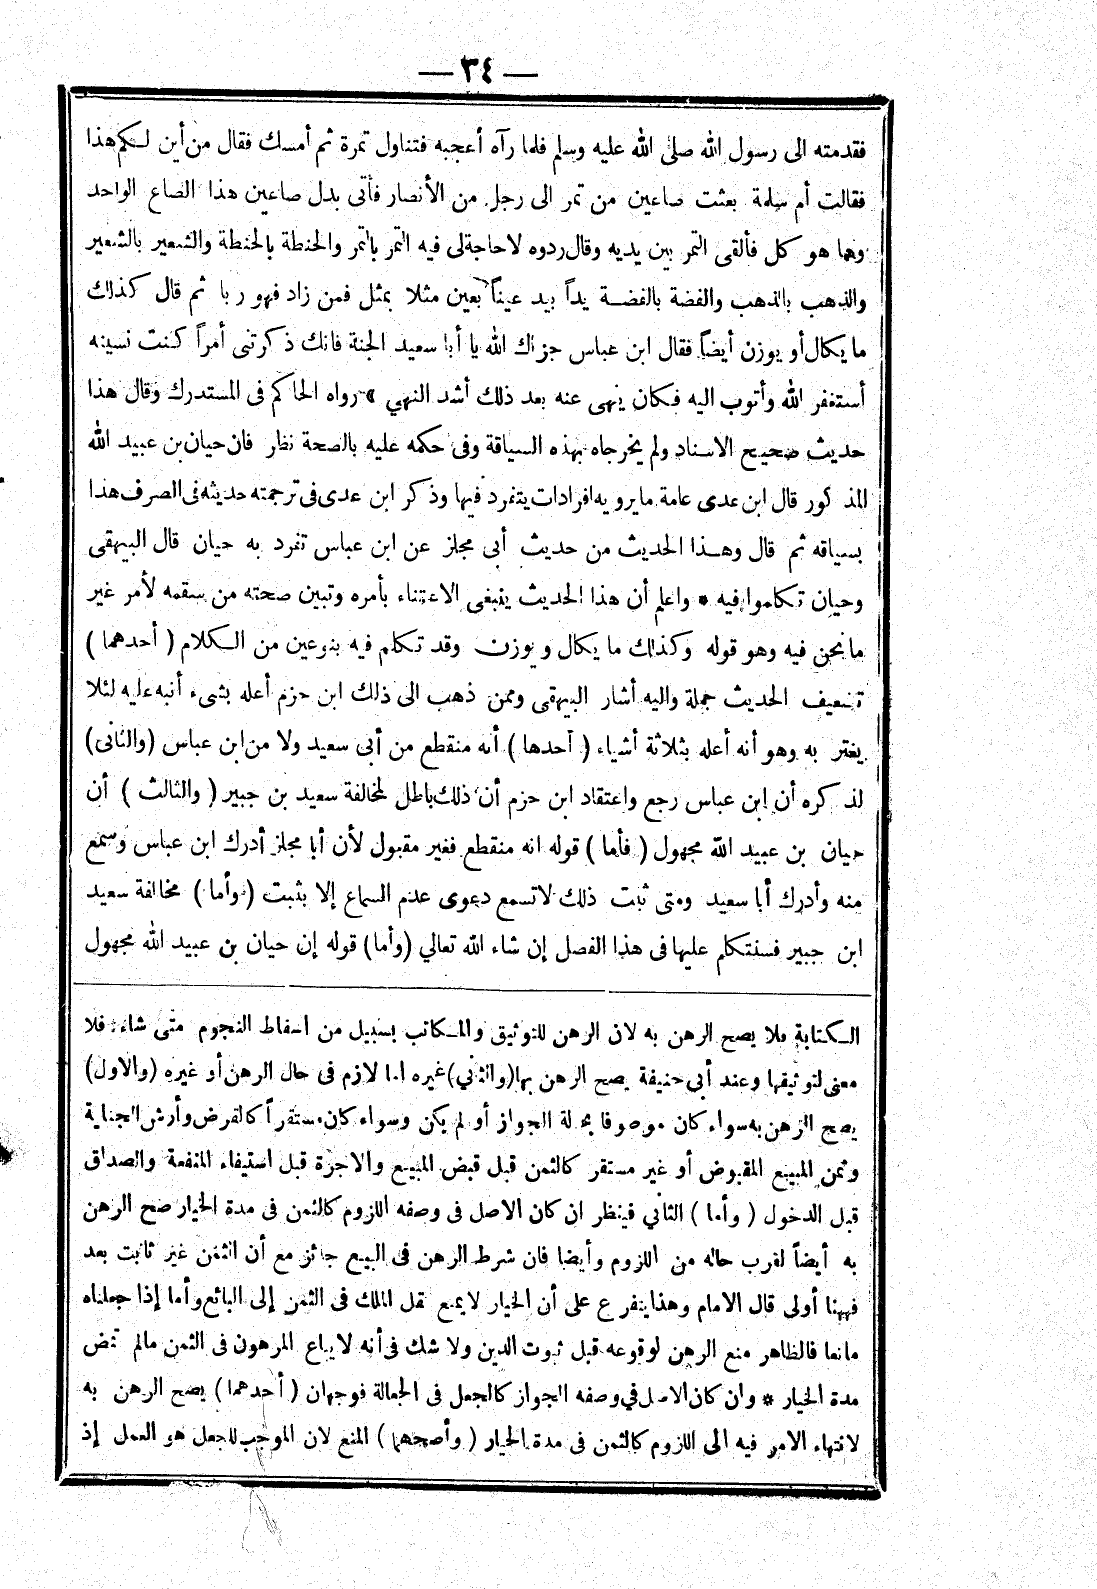 — ٣٤ —
فقدمته الى رسول الله صلى الله عليه وسلم فلما رآه أعجبه فتناول تمرة ثم أمسك فقال من أين لكم هذا
فقالت أم سلمة بعثت صاعين من تمر الى رجل من الأنصار فأتى بدل صاعين هذا الصاع الواحد
وها هو كل فألقى التمر بين يديه وقال ردوه لا حاجة لى فيه التمر بالتمر والحنطة بالحنطة والشعير بالشعير
والذهب بالذهب والفضة بالفضة يداً بيد عيناً بعين مثلا بمثل فمن زاد فهو ربا ثم قال كذلك
ما يكال أو يوزن أيضاً فقال ابن عباس جزاك الله يا أبا سعيد الجنة فانك ذكرتنى أمراً كنت نسيته
أستغفر الله وأتوب اليه فكان ينهى عنه بعد ذلك أشد النهي » رواه الحاكم فى المستدرك وقال هذا
حديث صحيح الاسناد ولم يخرجاه بهذه السياقة وفى حكمه عليه بالصحة نظر فان حيان بن عبيد الله
المذكور قال ابن عدى عامة ما يرويه افرادات يتفرد فيها وذكر ابن عدى فى ترجمته حديثه فى الصرف هذا
بسياقه ثم قال وهذا الحديث من حديث أبى مجلز عن ابن عباس تفرد به حيان قال البيهقى
وحيان تكلموا فيه * واعلم أن هذا الحديث ينبغى الاعتناء بأمره وتبين صحته من سقمه لأمر غير
ما نحن فيه وهو قوله وكذلك ما يكال ويوزن وقد تكلم فيه بنوعين من الكلام ( أحدهما )
تضعيف الحديث جملة واليه أشار البيهقى وممن ذهب الى ذلك ابن حزم أعله بشىء أنبه عليه لئلا
يغتر به وهو أنه أعله بثلاثة أشياء ( أحدها ) أنه منقطع من أبى سعيد ولا من ابن عباس (والثانى)
لذكره أن ابن عباس رجع واعتقاد ابن حزم أن ذلك باطل لمخالفة سعيد بن جبير ( والثالث ) أن
حيان بن عبيد الله مجهول ( فأما ) قوله انه منقطع فغير مقبول لأن أبا مجلز أدرك ابن عباس وسمع
منه وأدرك أبا سعيد ومتى ثبت ذلك لا تسمع دعوى عدم السماع إلا بثبت ( وأما ) مخالفة سعيد
ابن جبير فسنتكلم عليها فى هذا الفصل إن شاء الله تعالي (وأما) قوله إن حيان بن عبيد الله مجهول
الكتابة فلا يصح الرهن به لان الرهن للتوثيق والمكاتب بسبيل من اسقاط النجوم متى شاء فلا
معنى لتوثيقها وعند أبى حنيفة يصح الرهن بها (والثاني) غيره اما لازم فى حال الرهن أو غيره (والاول)
يصح الرهن به سواء كان موصوفا بحالة الجواز أو لم يكن وسواء كان مستقراً كالقرض وأرش الجناية
وثمن المبيع المقبوض أو غير مستقر كالثمن قبل قبض المبيع والاجرة قبل استيفاء المنفعة والصداق
قبل الدخول ( وأما ) الثاني فينظر ان كان الاصل فى وصفه اللزوم كالثمن فى مدة الخيار صح الرهن
به أيضاً لقرب حاله من اللزوم وأيضا فان شرط الرهن فى البيع جائز مع أن الثمن غير ثابت بعد
فههنا أولى قال الامام وهذا يتفرع على أن الخيار لا يمنع نقل الملك فى الثمن إلى البائع وأما إذا جعلناه
مانعا فالظاهر منع الرهن لوقوعه قبل ثبوت الدين ولا شك فى أنه لا يباع المرهون فى الثمن مالم تمض
مدة الخيار * وان كان الاصل في وصفه الجواز كالجعل فى الجعالة فوجهان ( أحدهما ) يصح الرهن به
لانتهاء الامر فيه الى اللزوم كالثمن فى مدة الخيار ( وأصحهما ) المنع لان الموجب للجعل هو العمل إذ